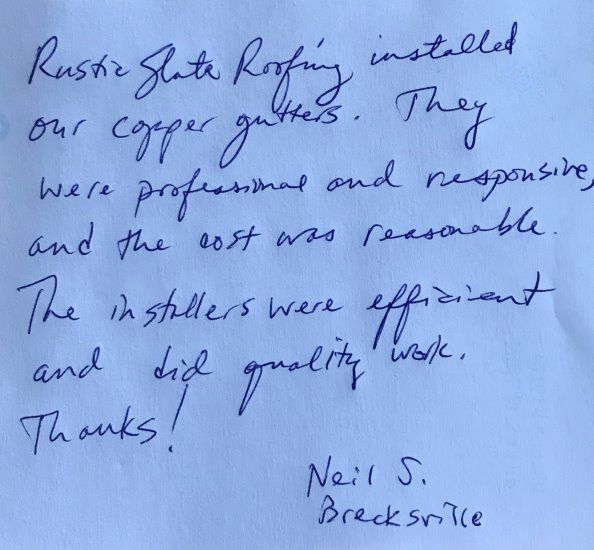 Rustic Slate Roofing installed
our copper gutters. They
were professional and responsive,
and the cost was reasonable.
The installers were efficient
and did quality work.
Thanks!
Neil S.
Brecksville